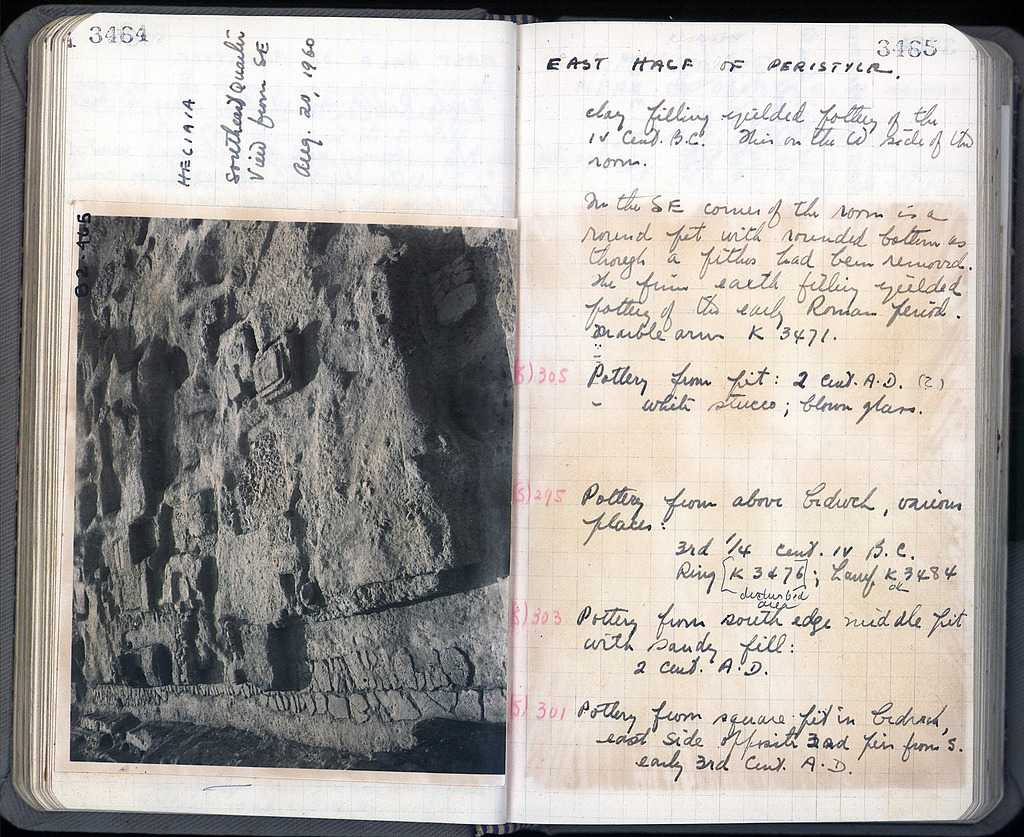 3464
HELIAIA
Southeast Quarter
View from SE
Aug. 20, 1960
82-465
3465
EAST HALF OF PERISTYLE.
clay filling yielded pottery of the
IV Cent. B.C. This on the W side of the
room.
In the SE corner of the room is a
round pit with rounded bottom as
though a pithos had been removed.
The firm earth filling yielded
pottery of the early Roman period.
Marble arm K 3471.
(S) 305 Pottery from pit: 2 cent. A.D. (?)
- white stucco; blown glass.
(S) 295 Pottery from above bedrock, various
places:
3rd 1/4 cent. IV B.C.
Ring [K 3476]; Lamp K 3484
disturbed ok
area
(S) 303 Pottery from south edge middle pit
with sandy fill:
2 cent. A.D.
(S) 301 Pottery from square pit in bedrock,
east side opposite 3rd pier from S.
early 3rd Cent. A.D.